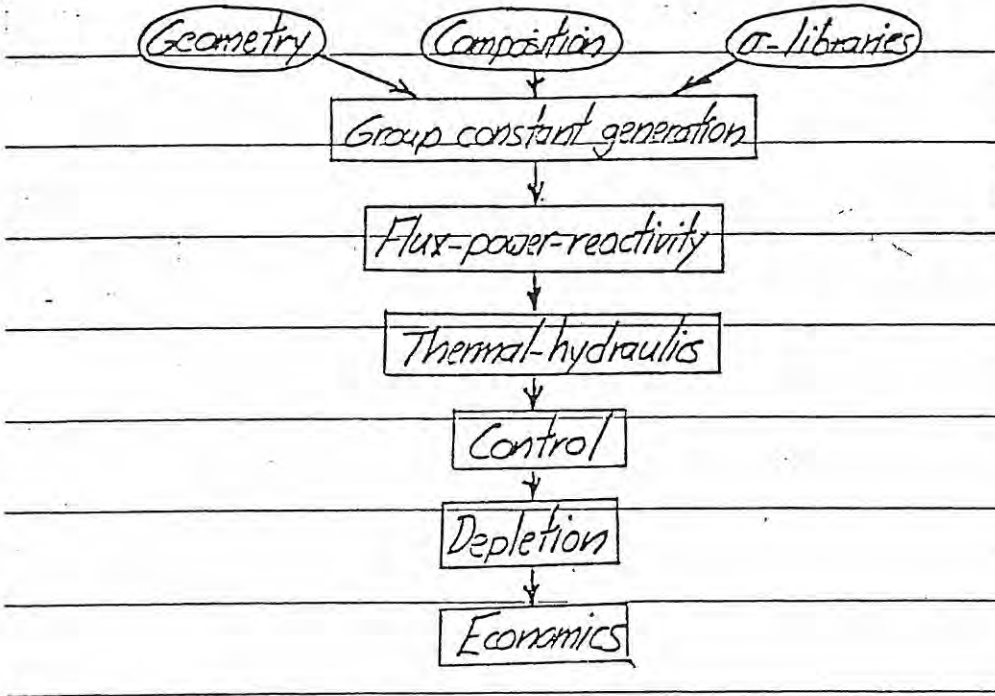 Geometry Composition σ-libraries
Group constant generation
Flux-power-reactivity
Thermal-hydraulics
Control
Depletion
Economics